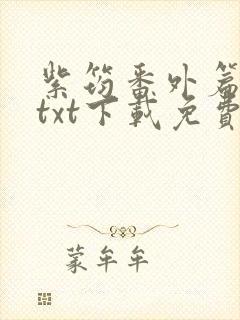 紫筠番外篇
txt下載免費
蒙牟牟